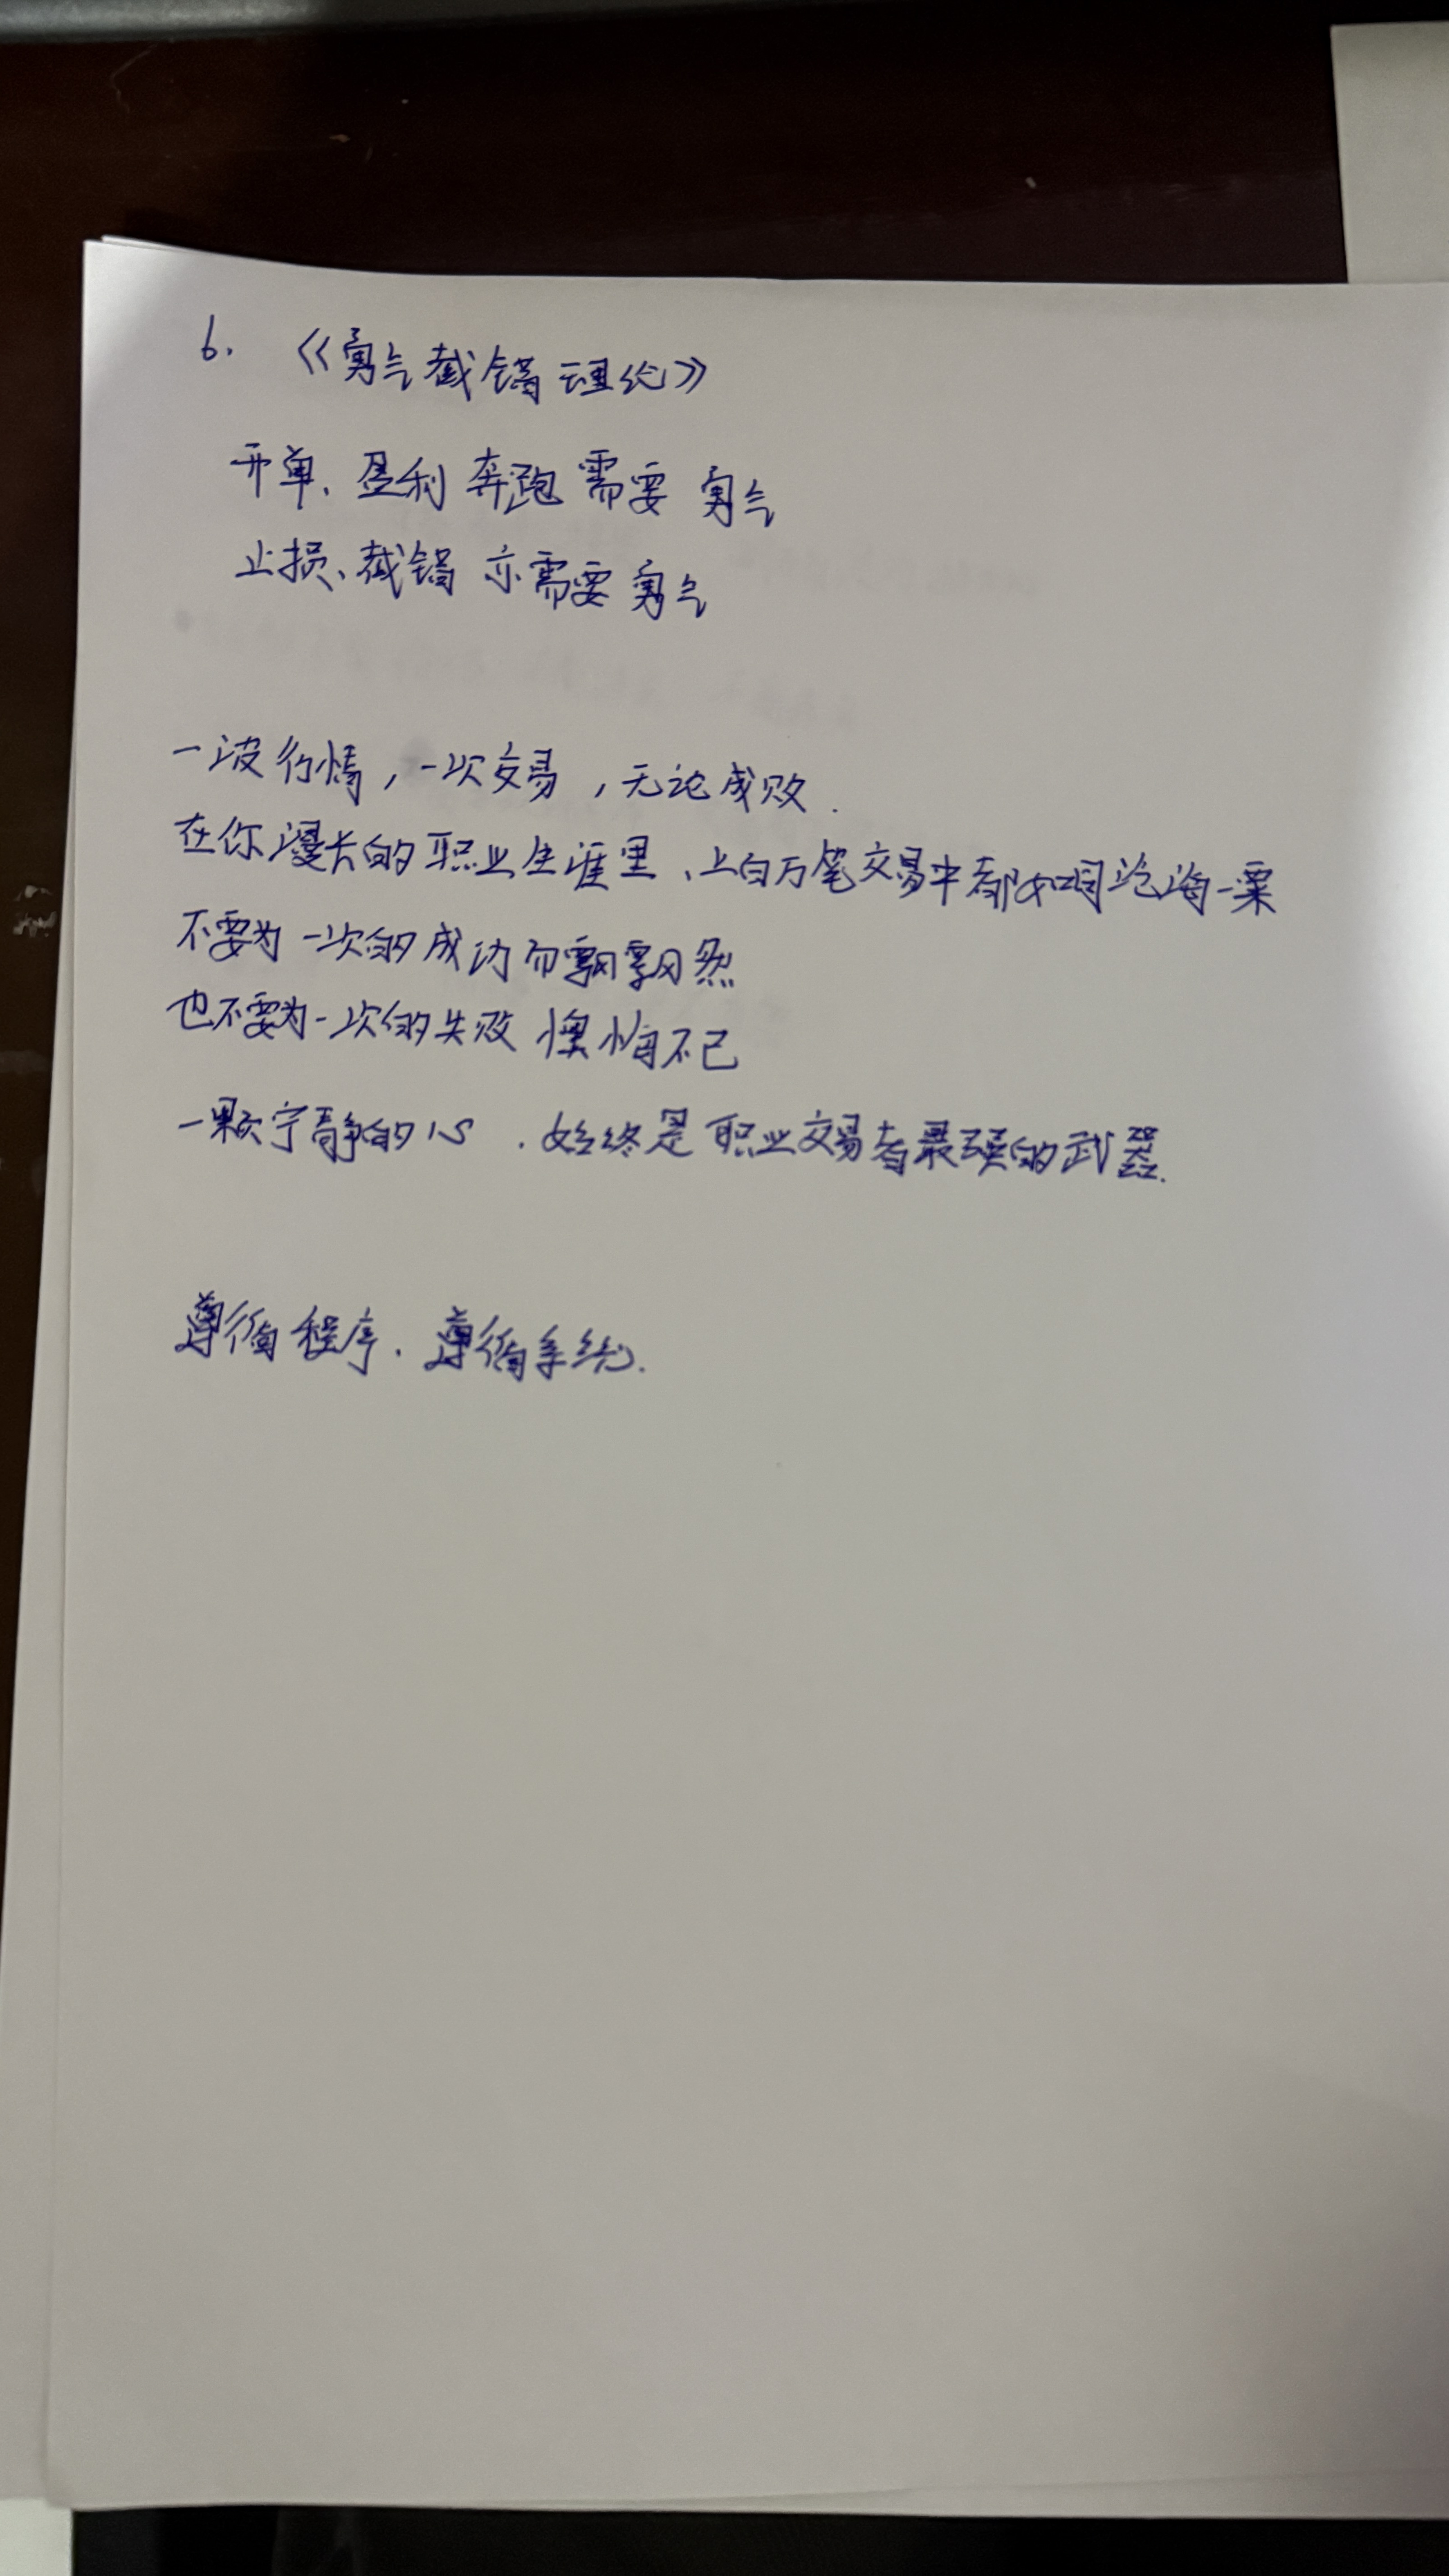 6. 《勇气截锅理论》
开单、盈利奔跑需要勇气
止损、截锅亦需要勇气
一波行情,一次交易,无论成败.
在你漫长的职业生涯里、上百万笔交易中都如同沧海一粟
不要为一次的成功而飘飘然
也不要为一次的失败懊悔不已
一颗宁静的心.始终是职业交易者最强的武器.
尊循程序.尊循系统.